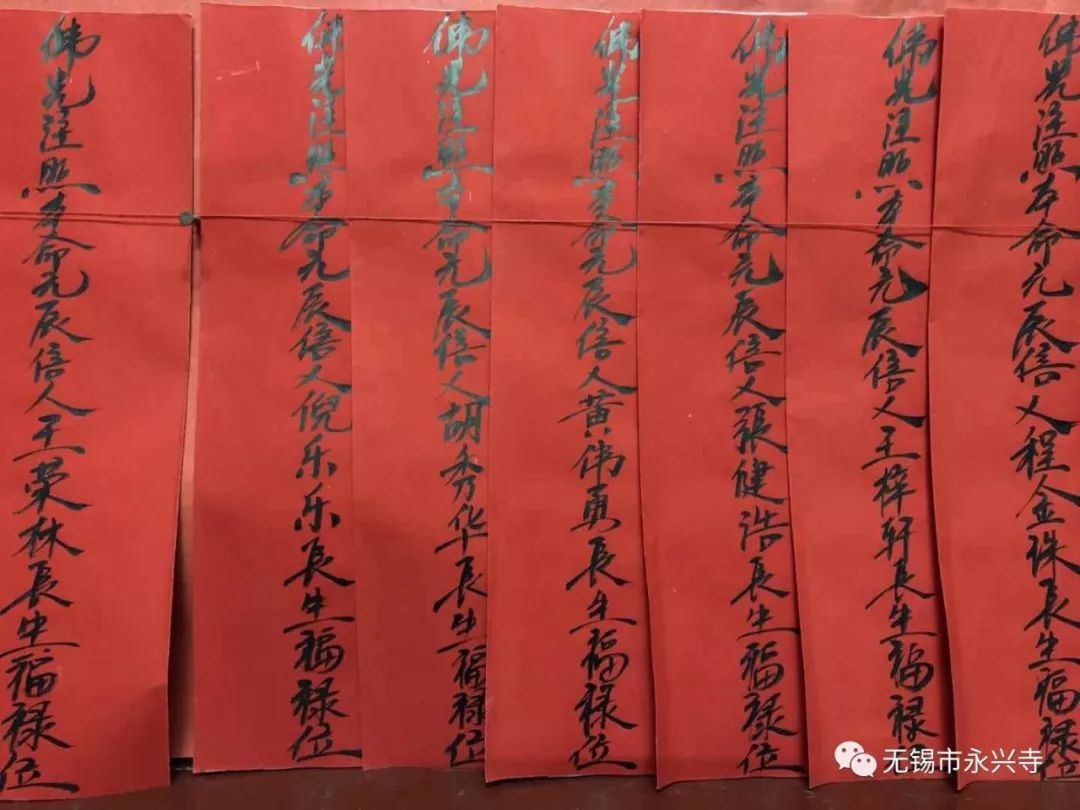 佛光注照本命元辰信人程金珠長生福禄位
佛光注照本命元辰信人王梓轩長生福禄位
佛光注照本命元辰信人張健浩長生福禄位
佛光注照本命元辰信人黄伟勇長生福禄位
佛光注照本命元辰信人胡秀华長生福禄位
佛光注照本命元辰信人倪乐乐長生福禄位
佛光注照本命元辰信人王荣林長生福禄位
无锡市永兴寺